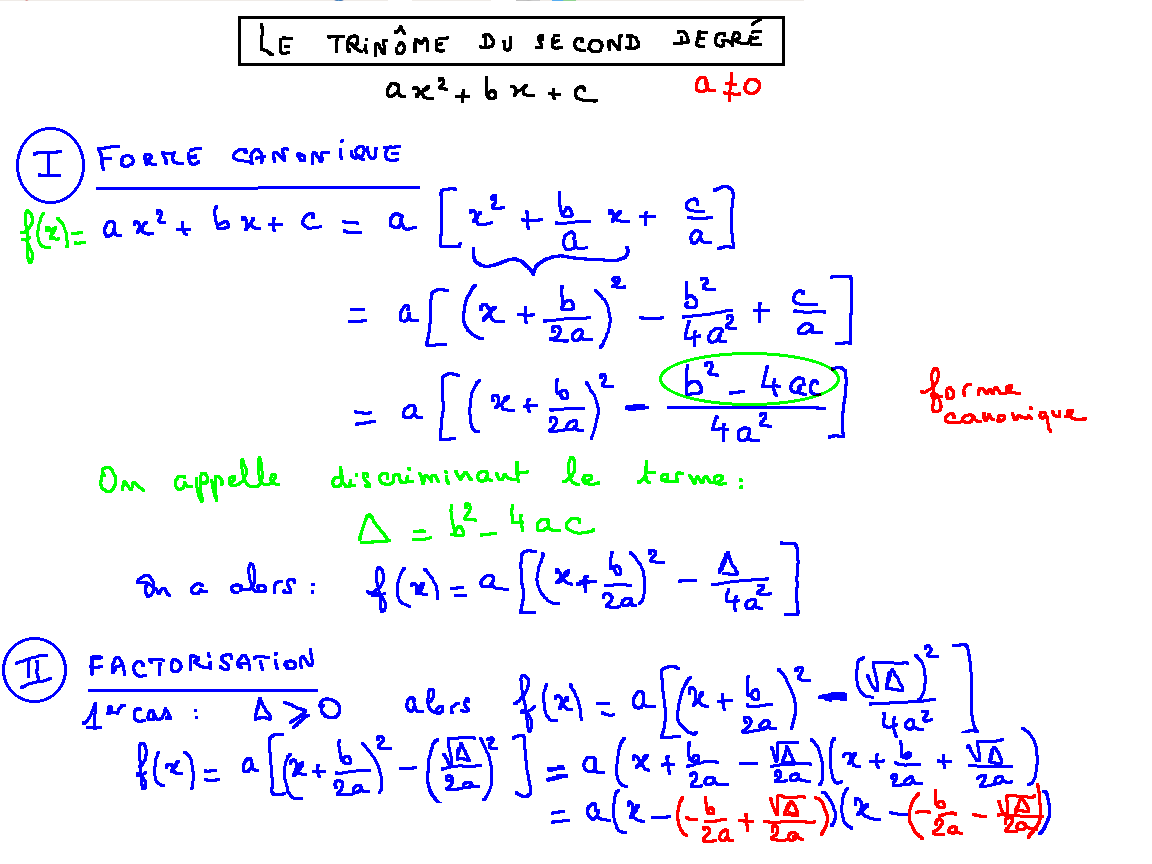 LE TRINÔME DU SECOND DEGRÉ
ax² + bx + c    a ≠ 0
I FORME CANONIQUE
f(x) = ax² + bx + c = a [x² + b/a x + c/a]
= a [(x + b/2a)² - b²/4a² + c/a]
= a [(x + b/2a)² - (b² - 4ac)/4a²]    forme canonique
On appelle discriminant le terme :
Δ = b² - 4ac
On a alors : f(x) = a [(x + b/2a)² - Δ/4a²]
II FACTORISATION
1er cas : Δ ⩾ 0    alors f(x) = a [(x + b/2a)² - (√Δ)²/4a²]
f(x) = a [(x + b/2a)² - (√Δ/2a)²] = a (x + b/2a - √Δ/2a)(x + b/2a + √Δ/2a)
= a (x - (-b/2a + √Δ/2a))(x - (-b/2a - √Δ/2a))